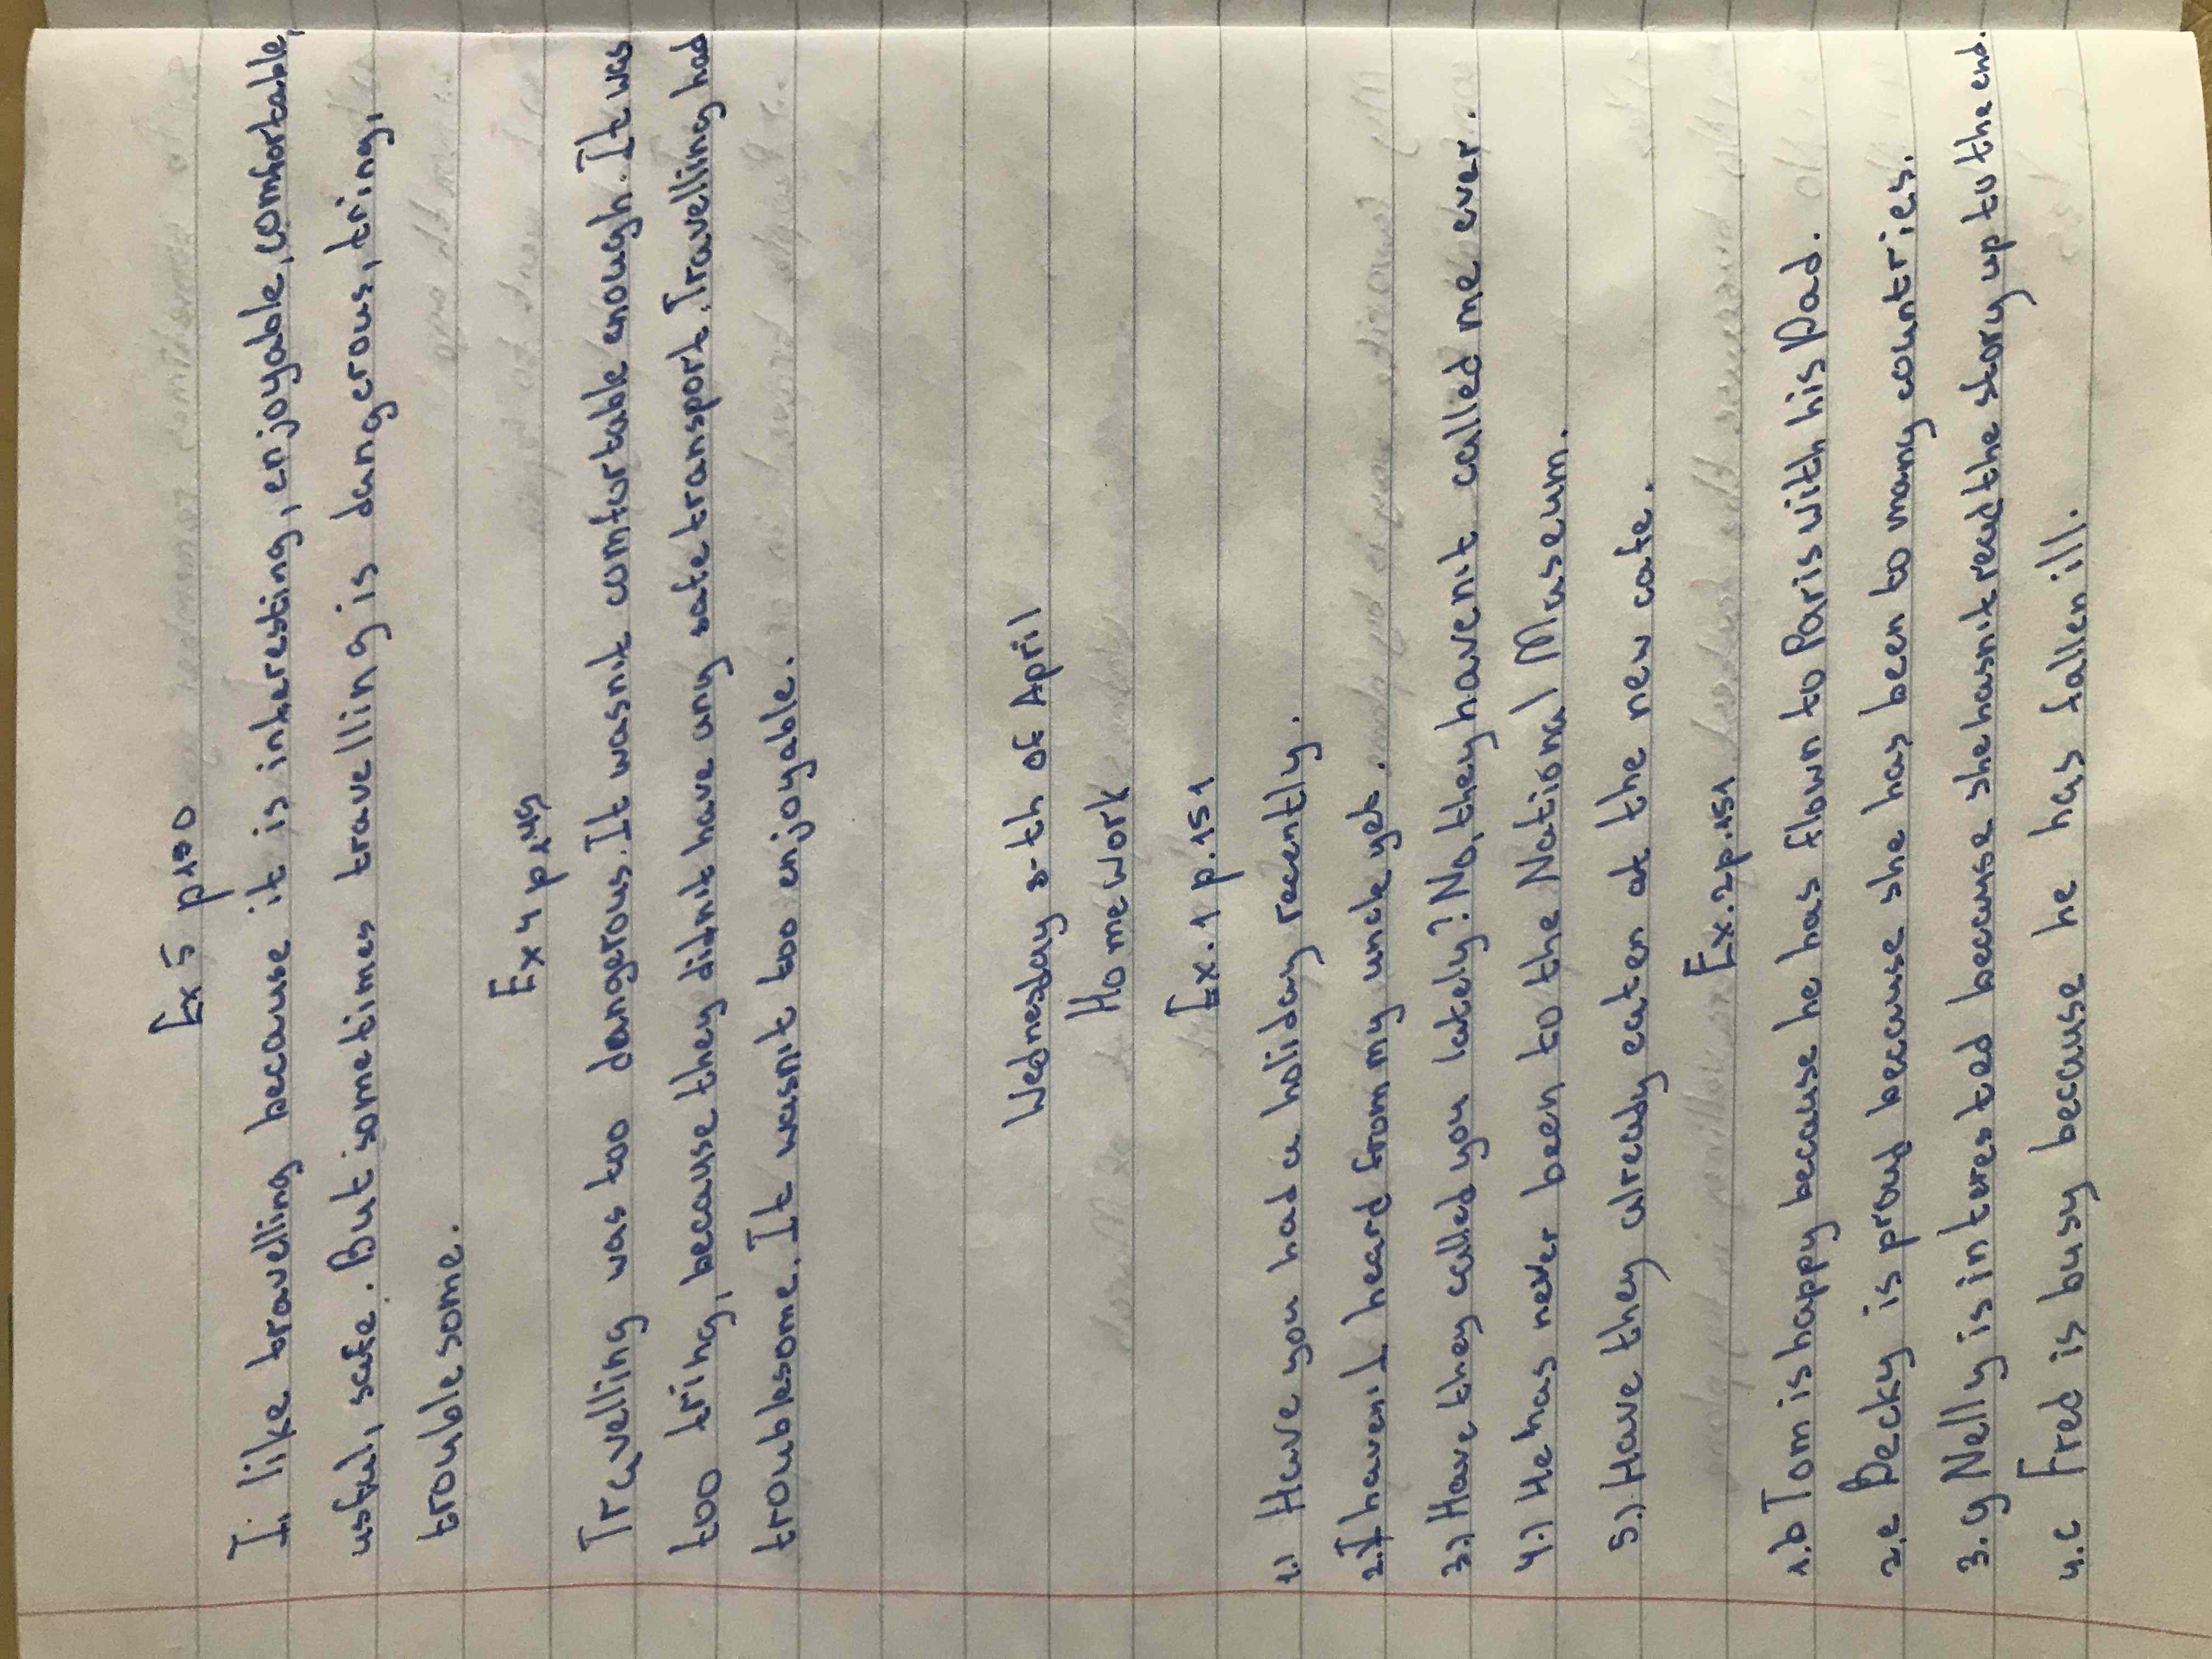 Ex 5 p190
I like travelling because it is interesting, enjoyable, comfortable,
usful, safe. But sometimes travelling is dangerous, tring,
troublesome.
Ex 4 p149
Travelling was too dangerous. It wasn't comfortable enough. It was
too tring, because they didn't have any safe transport. Travelling had
troublesome. It wasn't too enjoyable.
Wednesday 8-th of April
Homework
Ex. 1 p. 151
1.) Have you had a holiday recently.
2.) I haven't heard from my uncle yet.
3.) Have they called you lately? No, they haven't called me ever.
4.) He has never been to the National Museum.
5.) Have they already eaten at the new cafe.
Ex. 2 p. 151
1. b Tom is happy because he has flown to Paris with his Dad.
2. e Becky is proud because she has been to many countries.
3. g Nelly is interested because she hasn't read the story up to the end.
4. c Fred is busy because he has fallen ill.